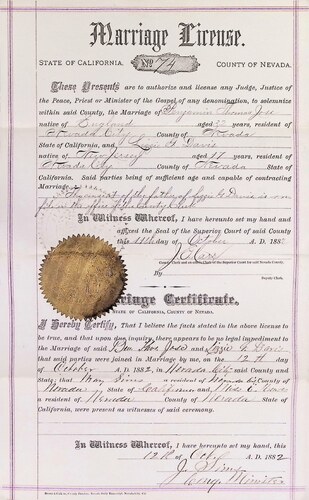 Marriage License.
STATE OF CALIFORNIA, No. 74 COUNTY OF NEVADA.
These Presents are to authorize and license any Judge, Justice
of the Peace, Priest or Minister of the Gospel of any denomination, to solemnize
within said County, the Marriage of Benjamin Thomas
native of England aged 22 years, resident of
Nevada City County of Nevada
State of California, and Lizzie G. Davis
native of New Jersey aged 17 years, resident of
Nevada City County of Nevada State of
California. Said parties being of sufficient age and capable of contracting
Marriage.
The consent of the father of Lizzie G Davis is on
file in the office of the County Clerk
In Witness Whereof, I have hereunto set my hand and
affixed the Seal of the Superior Court of said County
this 11th day of October A. D. 1882
County Clerk and ex-officio Clerk of the Superior Court for said Nevada County.
By
Deputy Clerk.
Marriage Certificate.
STATE OF CALIFORNIA, COUNTY OF NEVADA.
I Hereby Certify, That I believe the facts stated in the above license to
be true, and that upon due inquiry, there appears to be no legal impediment to
the Marriage of said Ben and Lizzie G. Davis
that said parties were joined in Marriage by me, on the 12th day
of October A. D. 1882, in Nevada City said County and
State; that May Sims a resident of County of
Nevada State of California and
a resident of Nevada County of Nevada State of
California, were present as witnesses of said ceremony.
In Witness Whereof, I have hereunto set my hand, this
12th of Oct A. D. 1882
J. Sims
Minister